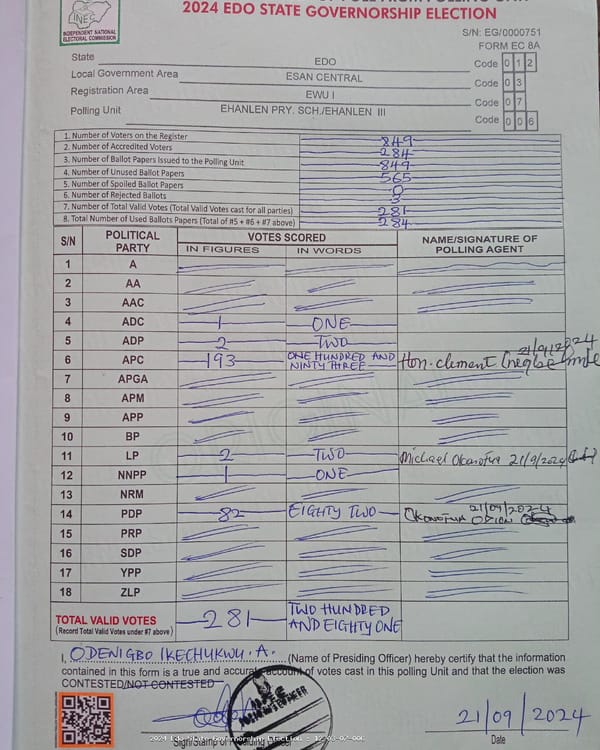 INEC
INDEPENDENT NATIONAL
ELECTORAL COMMISSION
2024 EDO STATE GOVERNORSHIP ELECTION
S/N: EG/0000751
FORM EC 8A
State EDO Code 0 1 2
Local Government Area ESAN CENTRAL Code 0 3
Registration Area EWU I Code 0 7
Polling Unit EHANLEN PRY. SCH./EHANLEN III Code 0 0 6
1. Number of Voters on the Register 849
2. Number of Accredited Voters 284
3. Number of Ballot Papers Issued to the Polling Unit 849
4. Number of Unused Ballot Papers 565
5. Number of Spoiled Ballot Papers 0
6. Number of Rejected Ballots 3
7. Number of Total Valid Votes (Total Valid Votes cast for all parties) 281
8. Total Number of Used Ballots Papers (Total of #5 + #6 + #7 above) 284
S/N POLITICAL PARTY VOTES SCORED NAME/SIGNATURE OF POLLING AGENT
IN FIGURES IN WORDS
1 A
2 AA
3 AAC
4 ADC 1 ONE
5 ADP 2 TWO
6 APC 193 ONE HUNDRED AND NINETY THREE Hon. Clement 21/9/2024
7 APGA
8 APM
9 APP
10 BP
11 LP 2 TWO Michael 21/9/2024
12 NNPP 1 ONE
13 NRM
14 PDP 82 EIGHTY TWO 21/09/2024
15 PRP
16 SDP
17 YPP
18 ZLP
TOTAL VALID VOTES 281 TWO HUNDRED AND EIGHTY ONE
(Record Total Valid Votes under #7 above)
I, ODENIGBO IKECHUKWU. A. (Name of Presiding Officer) hereby certify that the information
contained in this form is a true and accurate account of votes cast in this polling Unit and that the election was
CONTESTED/NOT CONTESTED
21/09/2024
Date